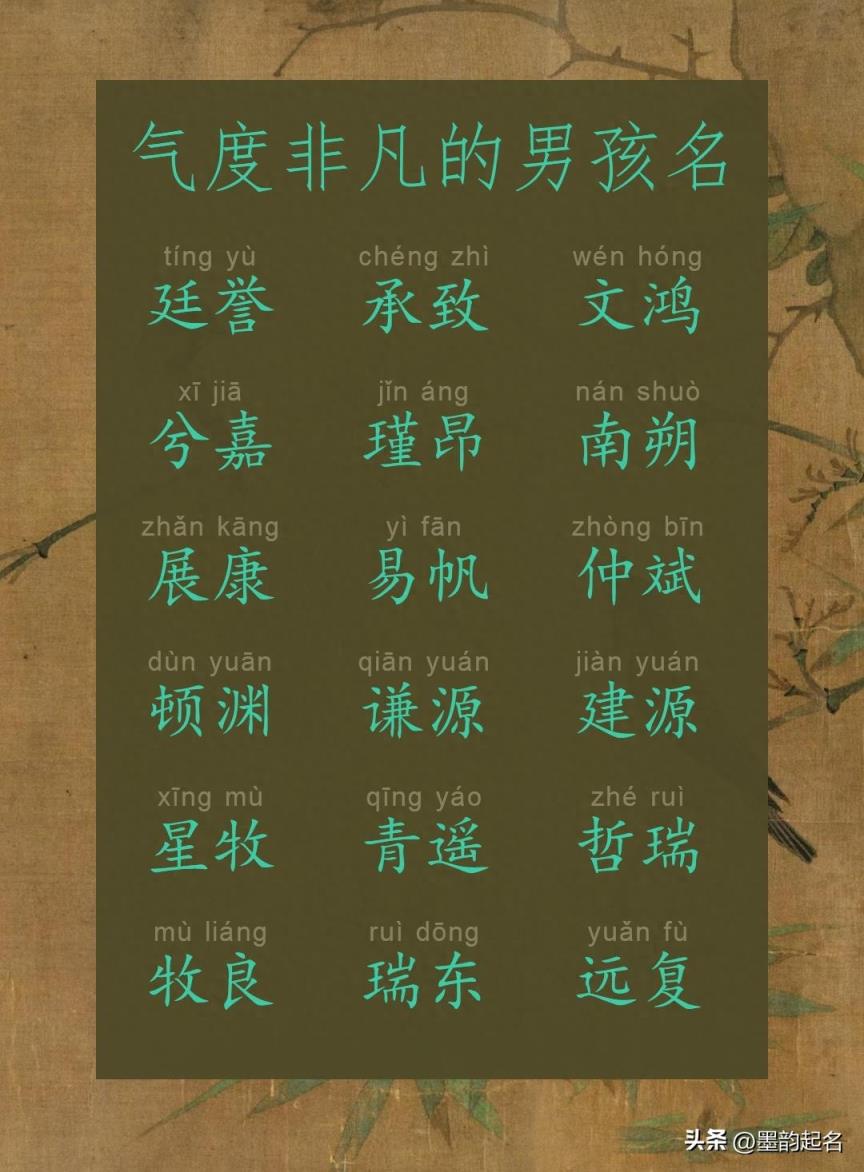 气度非凡的男孩名
tíng yù chéng zhì wén hóng
廷誉 承致 文鸿
xī jiā jǐn áng nán shuò
兮嘉 瑾昂 南朔
zhǎn kāng yì fān zhòng bīn
展康 易帆 仲斌
dùn yuān qiān yuán jiàn yuán
顿渊 谦源 建源
xīng mù qīng yáo zhé ruì
星牧 青遥 哲瑞
mù liáng ruì dōng yuǎn fù
牧良 瑞东 远复
头条 @墨韵起名